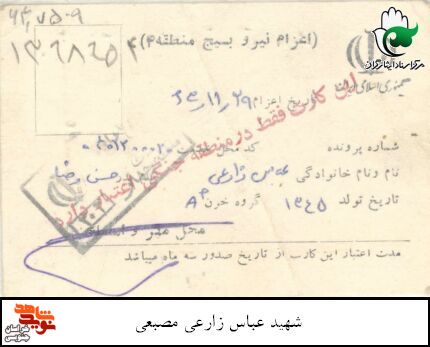 ۶۴,۷۵۰۹
(اعزام نیرو بسیج منطقه ۴)
۱۳۶۸۲۵۴
مرکز اسناد ایثارگران
جمهوری اسلامی
تاریخ اعزام ۶۵/۱۱/۲۹
این کارت فقط در منطقه جنگی اعتبار دارد
شماره پرونده کد محل
نام و نام خانوادگی عباس زارعی حسن رضا
تاریخ تولد ۱۳۴۵ گروه خون A+
محل مهر و امضاء
مدت اعتبار این کارت از تاریخ صدور سه ماه میباشد
نوید شاهد
خراسان جنوبی
شهید عباس زارعی مصبعی